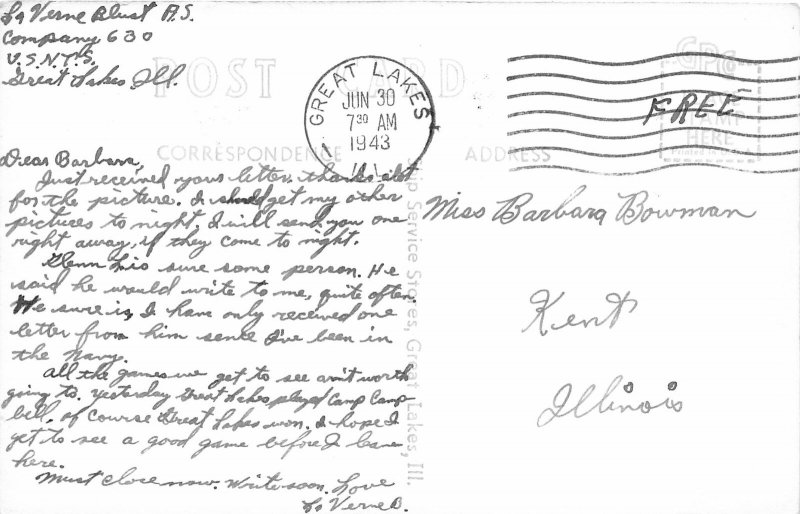 La Verne Blust A.S.
Company 630
U.S.N.T.S.
Great Lakes Ill.
POST CARD
GREAT LAKES
JUN 30
7 30 AM
1943
ILL.
FREE
STAMP
HERE
CORRESPONDENCE
ADDRESS
Dear Barbara,
Just received your letter, thanks alot
for the picture. I should get my other
pictures to night, I will send you one
right away, if they come to night.
Glenn L. is sure some person. He
said he would write to me, quite often.
He sure is, I have only received one
letter from him sence I've been in
the Navy.
All the games we get to see ain't worth
going to. Yesterday Great Lakes played Camp Camp-
bell, of course Great Lakes won. I hope I
get to see a good game before I leave
here.
Must close now. Write soon. Love
La Verne B.
Ship Service Stores, Great Lakes, Ill.
Miss Barbara Bowman
Kent
Illinois